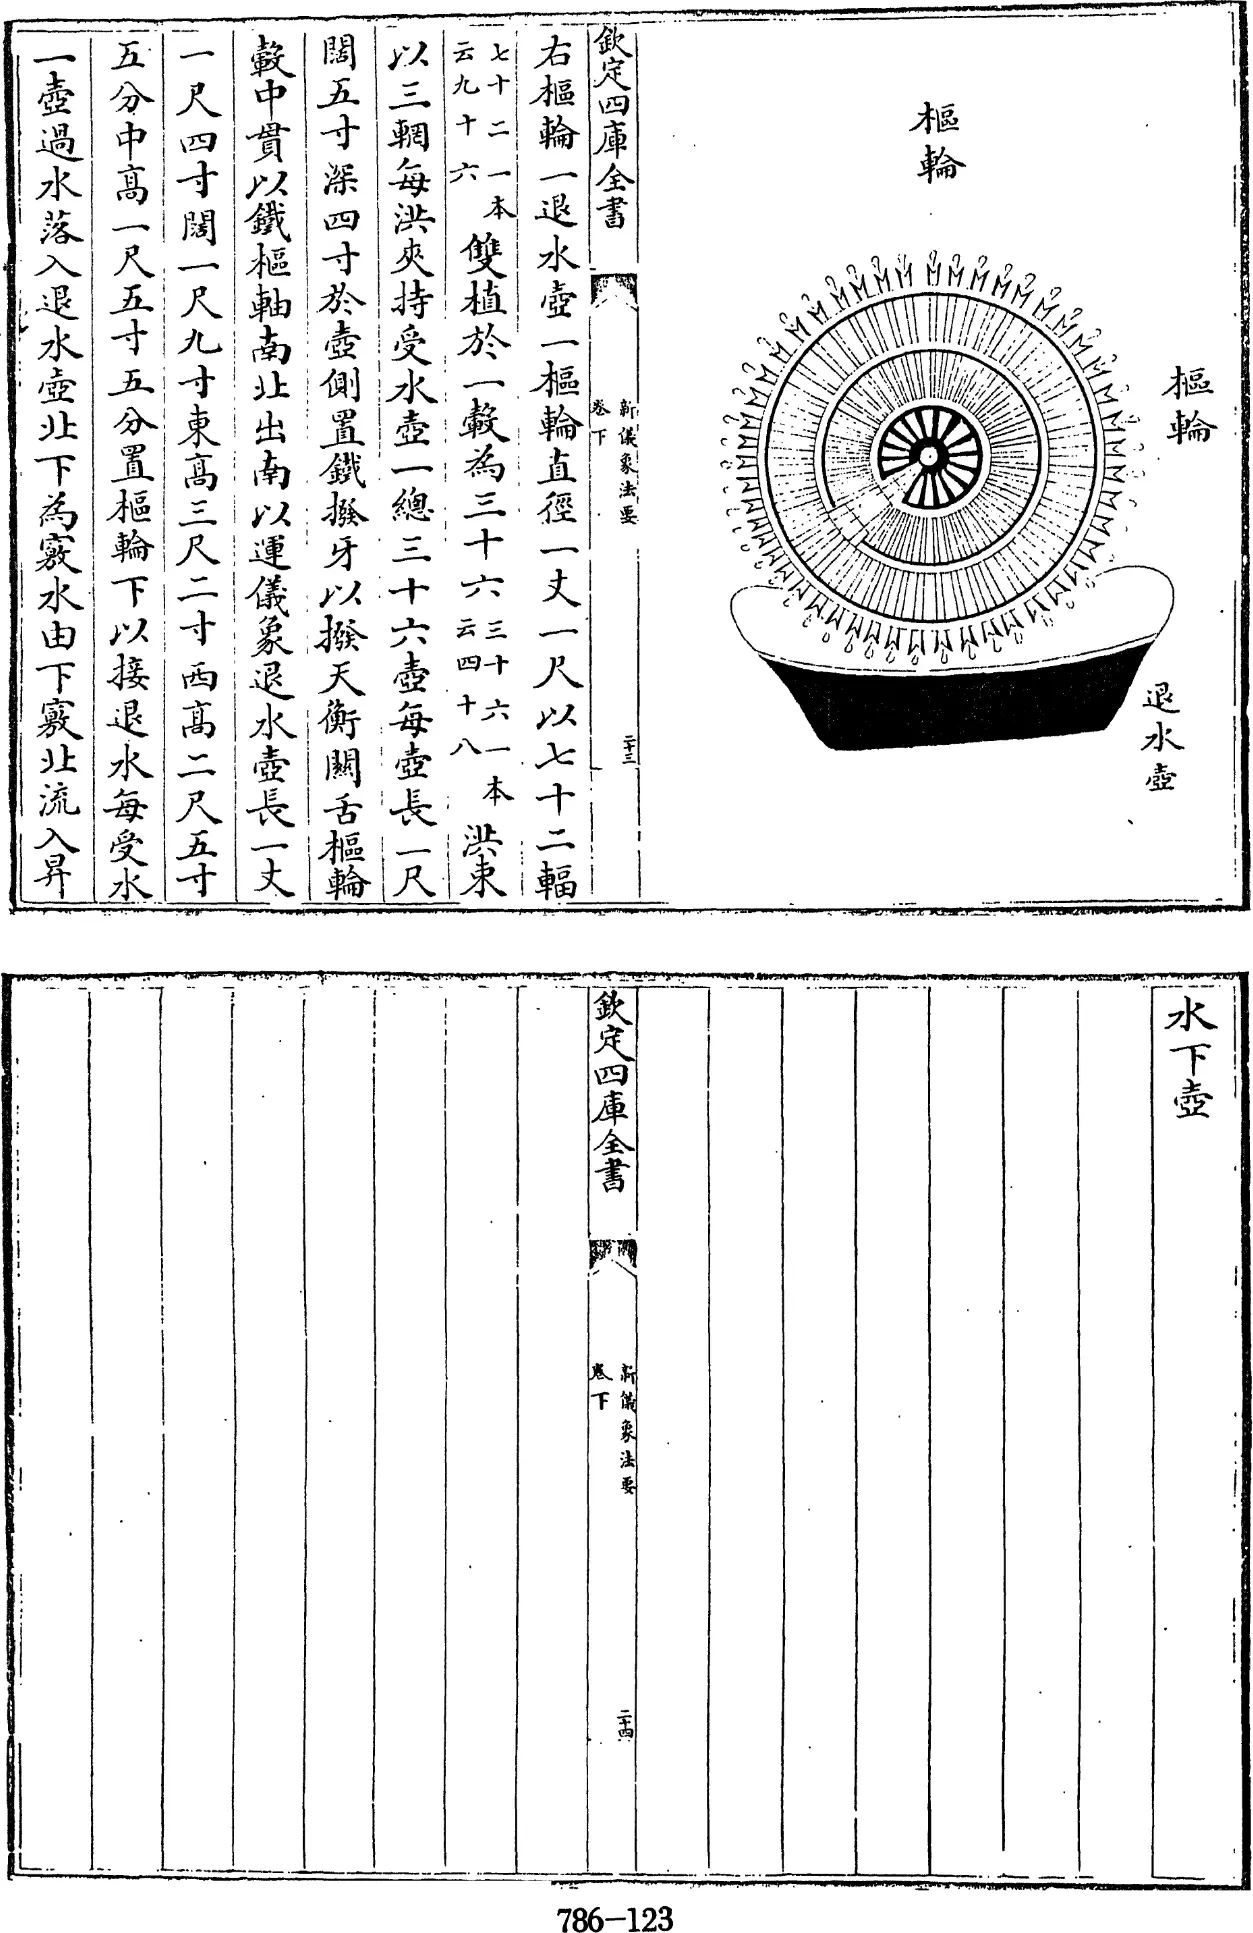 樞輪
樞輪
退水壺
欽定四庫全書
新儀象法要
卷下
二十三
右樞輪一退水壺一樞輪直徑一丈一尺以七十二輻
七十二一本
云九十六
雙植於一轂為三十六
三十六一本
云四十八
洪束
以三輞每洪夾持受水壺一總三十六壺每壺長一尺
闊五寸深四寸於壺側置鐵撥牙以撥天衡關舌樞輪
轂中貫以鐵樞軸南北出南以運儀象退水壺長一丈
一尺四寸闊一尺九寸東高三尺二寸西高二尺五寸
五分中高一尺五寸五分置樞輪下以接退水每受水
一壺過水落入退水壺北下為竅水由下竅北流入昇
水下壺
欽定四庫全書
新儀象法要
卷下
二十四
786-123